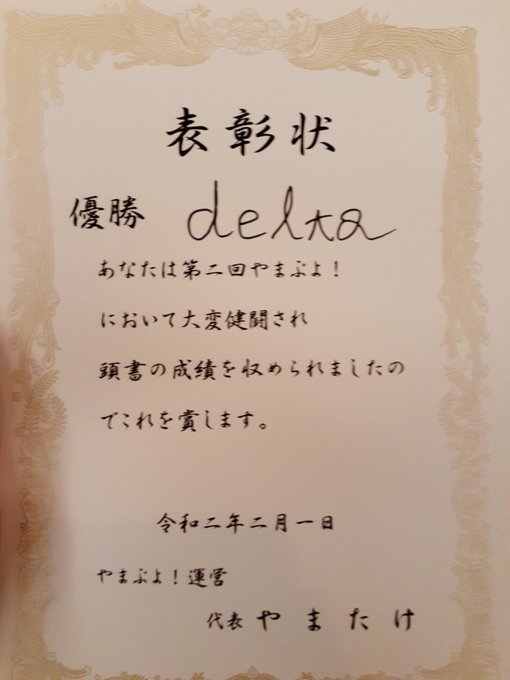 表彰状
優勝 delta
あなたは第二回やまぷよ!
において大変健闘され
頭書の成績を収められましたの
でこれを賞します。
令和二年二月一日
やまぷよ!運営
代表 やまたけ